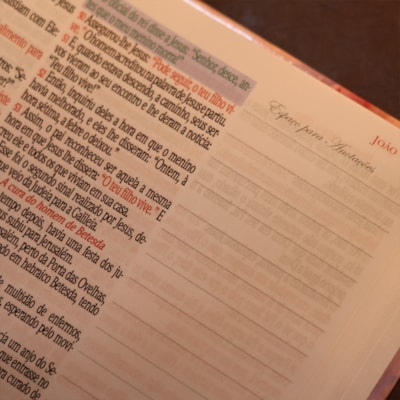 João
Espaço para Anotações
o oficial do rei disse a Jesus: "Senhor, desce, an-
tes que o meu menino morra!"
50 Assegurou-lhe Jesus: "Pode seguir, o teu filho vi-
ve." O homem acreditou na palavra de Jesus e partiu.
51 E, quando estava descendo, a caminho, seus ser-
vos vieram ao seu encontro e lhe deram a notícia:
"Teu filho vive!"
52 Então, inquiriu deles a hora em que o menino
havia melhorado, e eles lhe disseram: "Ontem, à
hora sétima, a febre o deixou."
53 Assim, o pai reconheceu ser aquela a mesma
hora em que Jesus lhe dissera: "O teu filho vive." E
creu ele e todos os que viviam em sua casa.
Esse foi o segundo sinal realizado por Jesus, de-
veio da Judeia para a Galileia.
A cura do homem de Betesda
tempo depois, havia uma festa dos ju-
us subiu para Jerusalém.
usalém, perto da Porta das Ovelhas,
ado em hebraico Betesda, tendo
e multidão de enfermos,
s, esperando pelo movi-
cia um anjo do Se-
que entrasse no
ra curado de
stiam com Ele
u Jesus
dimento para